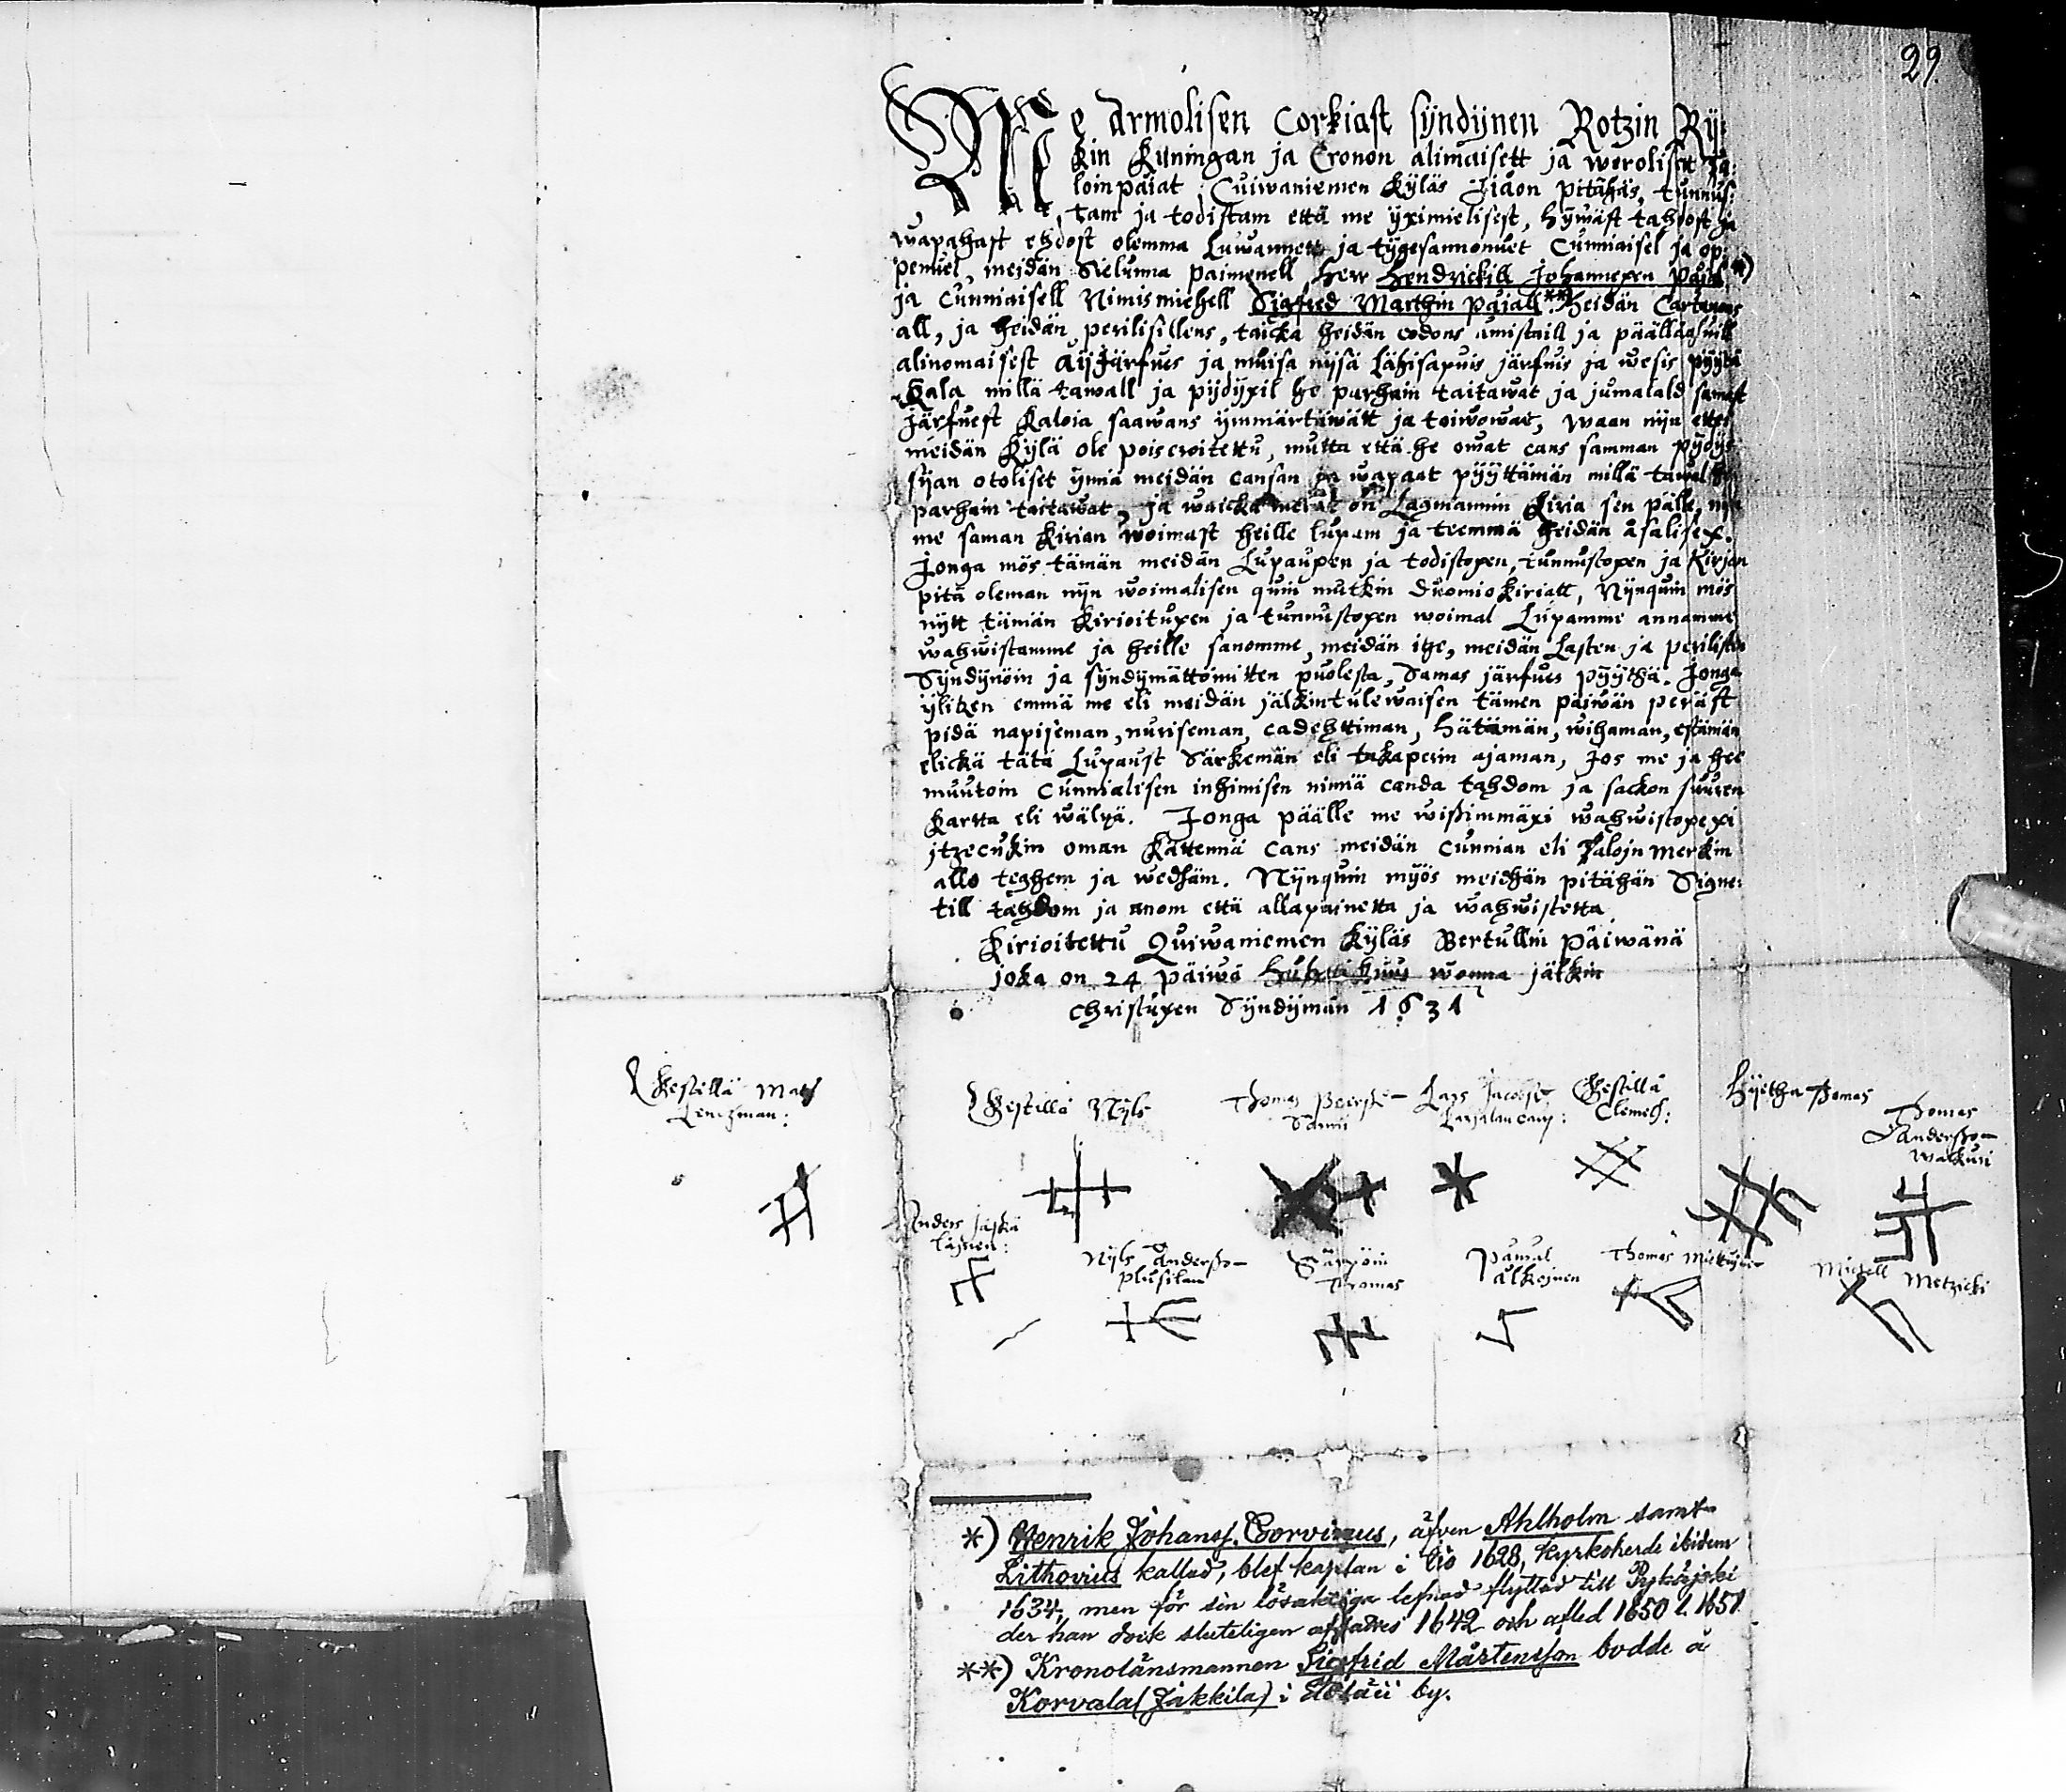 29.
Me Armolisen Corkiast syndynen Rotzin Ry-
kin Kuningan ja Cronon alimaisett ja werolisett Ta:
loinpäiat Cuiwaniemen Kyläs Jiåon pitähäs, tunnus:
tam ja todistam että me yximielisest, hywäst tahdost ja
wapahast ehdost olemma Luwannett ja tygesannonuet Cunniaisel ja op:
penuel, meidän Sielunna paimenell, Herr Hendrickill Johannexen Pojal *)
ja Cunniaisell Nimismiehell Sigfred Marthin pojall **) Heidän Cartanons
all, ja heidän perilisillens, taicka heidän codons omistaill ja
alinomaisest Aijjärfues ja muisa niisä Lähisapuis järfuis ja wesis pyytä
Kala millä tawall ja pydyxil he parhain taitawat ja jumalald samast
Järfuest Kaloia saawans ymmärtäwätt ja toiwowat, waan nijn ettei
meidän Kylä ole poiseroitettu, mutta että he owat cans samman pydys
sijan otoliset ynnä meidän cansan ja wapaat pyyttämän millä tawal he
parhain taitawat, ja waicka meille on Lagmannin Kiria sen päälle, nijn
me saman Kirian woimast heille lupam ja teemmä heidän Asalisex.
Jonga mös tämän meidän Lupauxen ja todistoxen, tunnustoxen ja Kirjan
pitä oleman nijn woimalisen quin mutkin Duomiokiriatt, Nijnquin mös
nytt tämän Kirioituxen ja tunnustoxen woimal Lupamme annamme
wahwistamme ja heille sanomme, meidän itze, meidän Lasten ja perilisten
Syndynöin ja syndymättömitten puolesta, Samas järfues pyythä. Jonga
ylitzen emmä me eli meidän jälkintulewaisen tämen päiwän peräst
pidä napiseman, nuriseman, cadehtiman, Hätämän, wihaman, estämän
elickä tätä Lupaust Särkemän eli takaperin ajaman, Jos me ja hee
muutoin Cunnialisen inhimisen nimiä canda tahdom ja sackon suuren
Kartta eli wälyä. Jonga päälle me wissimmäxi wahwistoxexi
jtzecukin oman Kättennä cans meidän Cunnian eli Talojn Merkin
alle teghem ja wedhäm. Nijnquin myös meidhän pitähän Signe:
till tahdom ja anom että allapainetta ja wahwistetta.
Kirioitettu Quiwaniemen Kyläs Bertullin Päiwänä
joka on 24 päiwä wonna jälkin
Christuxen Syndymän 1631
Kestillä Mats
Lentzman:
Kestillä Nyls
Thomas
Lars Jacobss
Kestillä
Clemet:
Hyetha Thomas
Thomas
Anderssson
Walkuri
Anders
Nyls Andersso-
Thomas
Påwal
Alkojnen
Thomas
Michell Metzicki
*) Henrik Johanss. Corvinus, äfven Ahlholm samt
Lithovius kallad, blef kaplan i Ijo 1628, kyrkoherde ibidem
1634, men för sin lösaktiga lefnad flyttad till Pyhäjoki
der han dock sluteligen afsattes 1642 och afled 1650 l. 1651.
**) Kronolänsmannen Sigfrid Mårtensson bodde å
Korvala (Jakkila) i by.